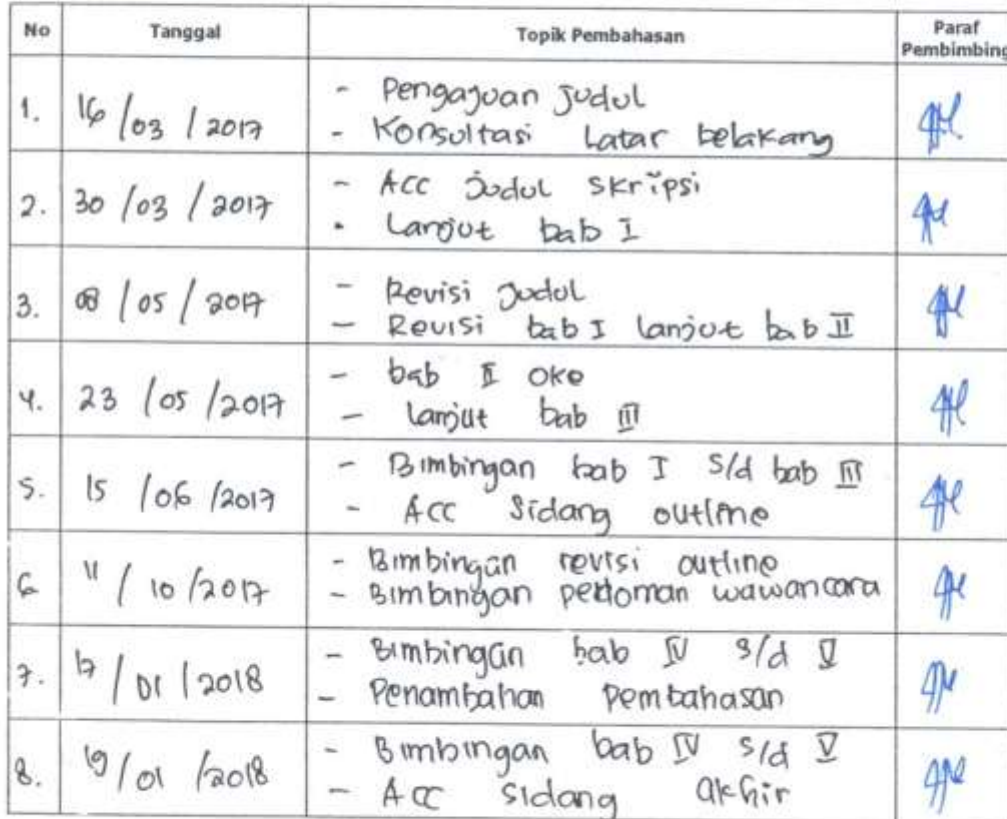 No Tanggal Topik Pembahasan Paraf Pembimbing
1. 16/03/2017 - Pengajuan Judul
- Konsultasi Latar belakang
2. 30/03/2017 - ACC Judul Skripsi
- Lanjut bab I
3. 08/05/2017 - Revisi Judul
- Revisi bab I lanjut bab II
4. 23/05/2017 - bab II Oke
- Lanjut bab III
5. 15/06/2017 - Bimbingan bab I s/d bab III
- Acc Sidang outline
6 11/10/2017 - Bimbingan revisi outline
- Bimbingan pedoman wawancara
7. 17/01/2018 - Bimbingan bab IV s/d V
- Penambahan pembahasan
8. 19/01/2018 - Bimbingan bab IV s/d V
- Acc sidang akhir